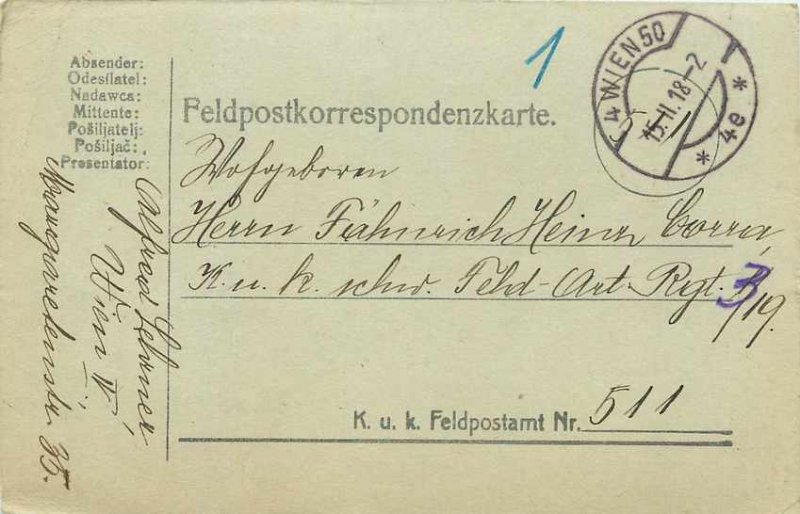 1
4 WIEN 50
15.II.18-2
* 4e *
Absender:
Odesílatel:
Nadawca:
Mittente:
Pošiljatelj:
Pošiljač:
Presentator:
Feldpostkorrespondenzkarte.
Wohlgeboren
Herrn Fähnrich Heinz Corra,
K. u. k. schw. Feld-Art. Rgt. 3/19.
K. u. k. Feldpostamt Nr. 511
Alfred
Wien IV,
Margaretenstr. 35.